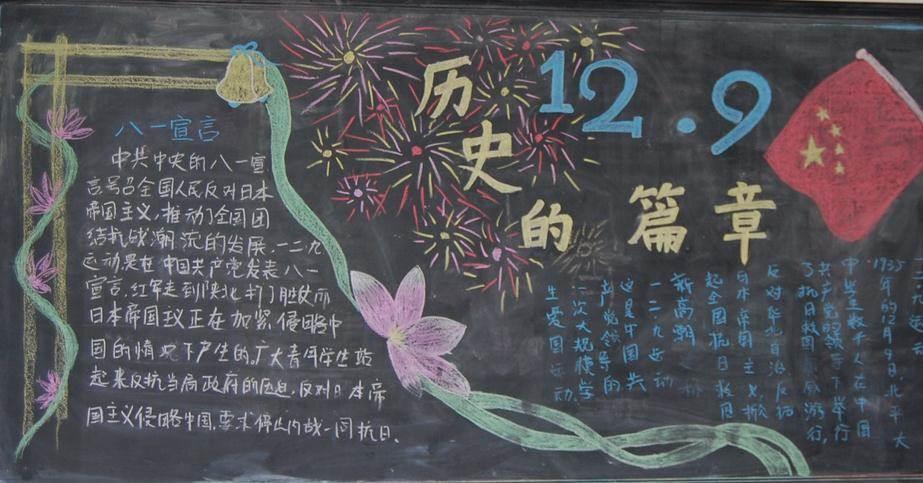 历史的篇章
12.9
八一宣言
中共中央的八一宣
言号召全国人民反对日本
帝国主义,推动全国团
结抗战潮流的发展,一二九
运动是在中国共产党发表八一
宣言,红军走到陕北打了胜仗而
日本帝国主义正在加紧侵略中
国的情况下产生的,广大青年学生站
起来反抗当局政府的压迫,反对日本帝
国主义侵略中国,要求停止内战一同抗日。
1935年的12月9日,北平大
中学生数千人在中国
共产党的领导下举行
了抗日救国示威游行,
反对华北自治反抗
日本帝国主义掀
起全国抗日救国
新高潮
一二九运动
这是中国共
产党领导的
一次大规模学
生爱国运动